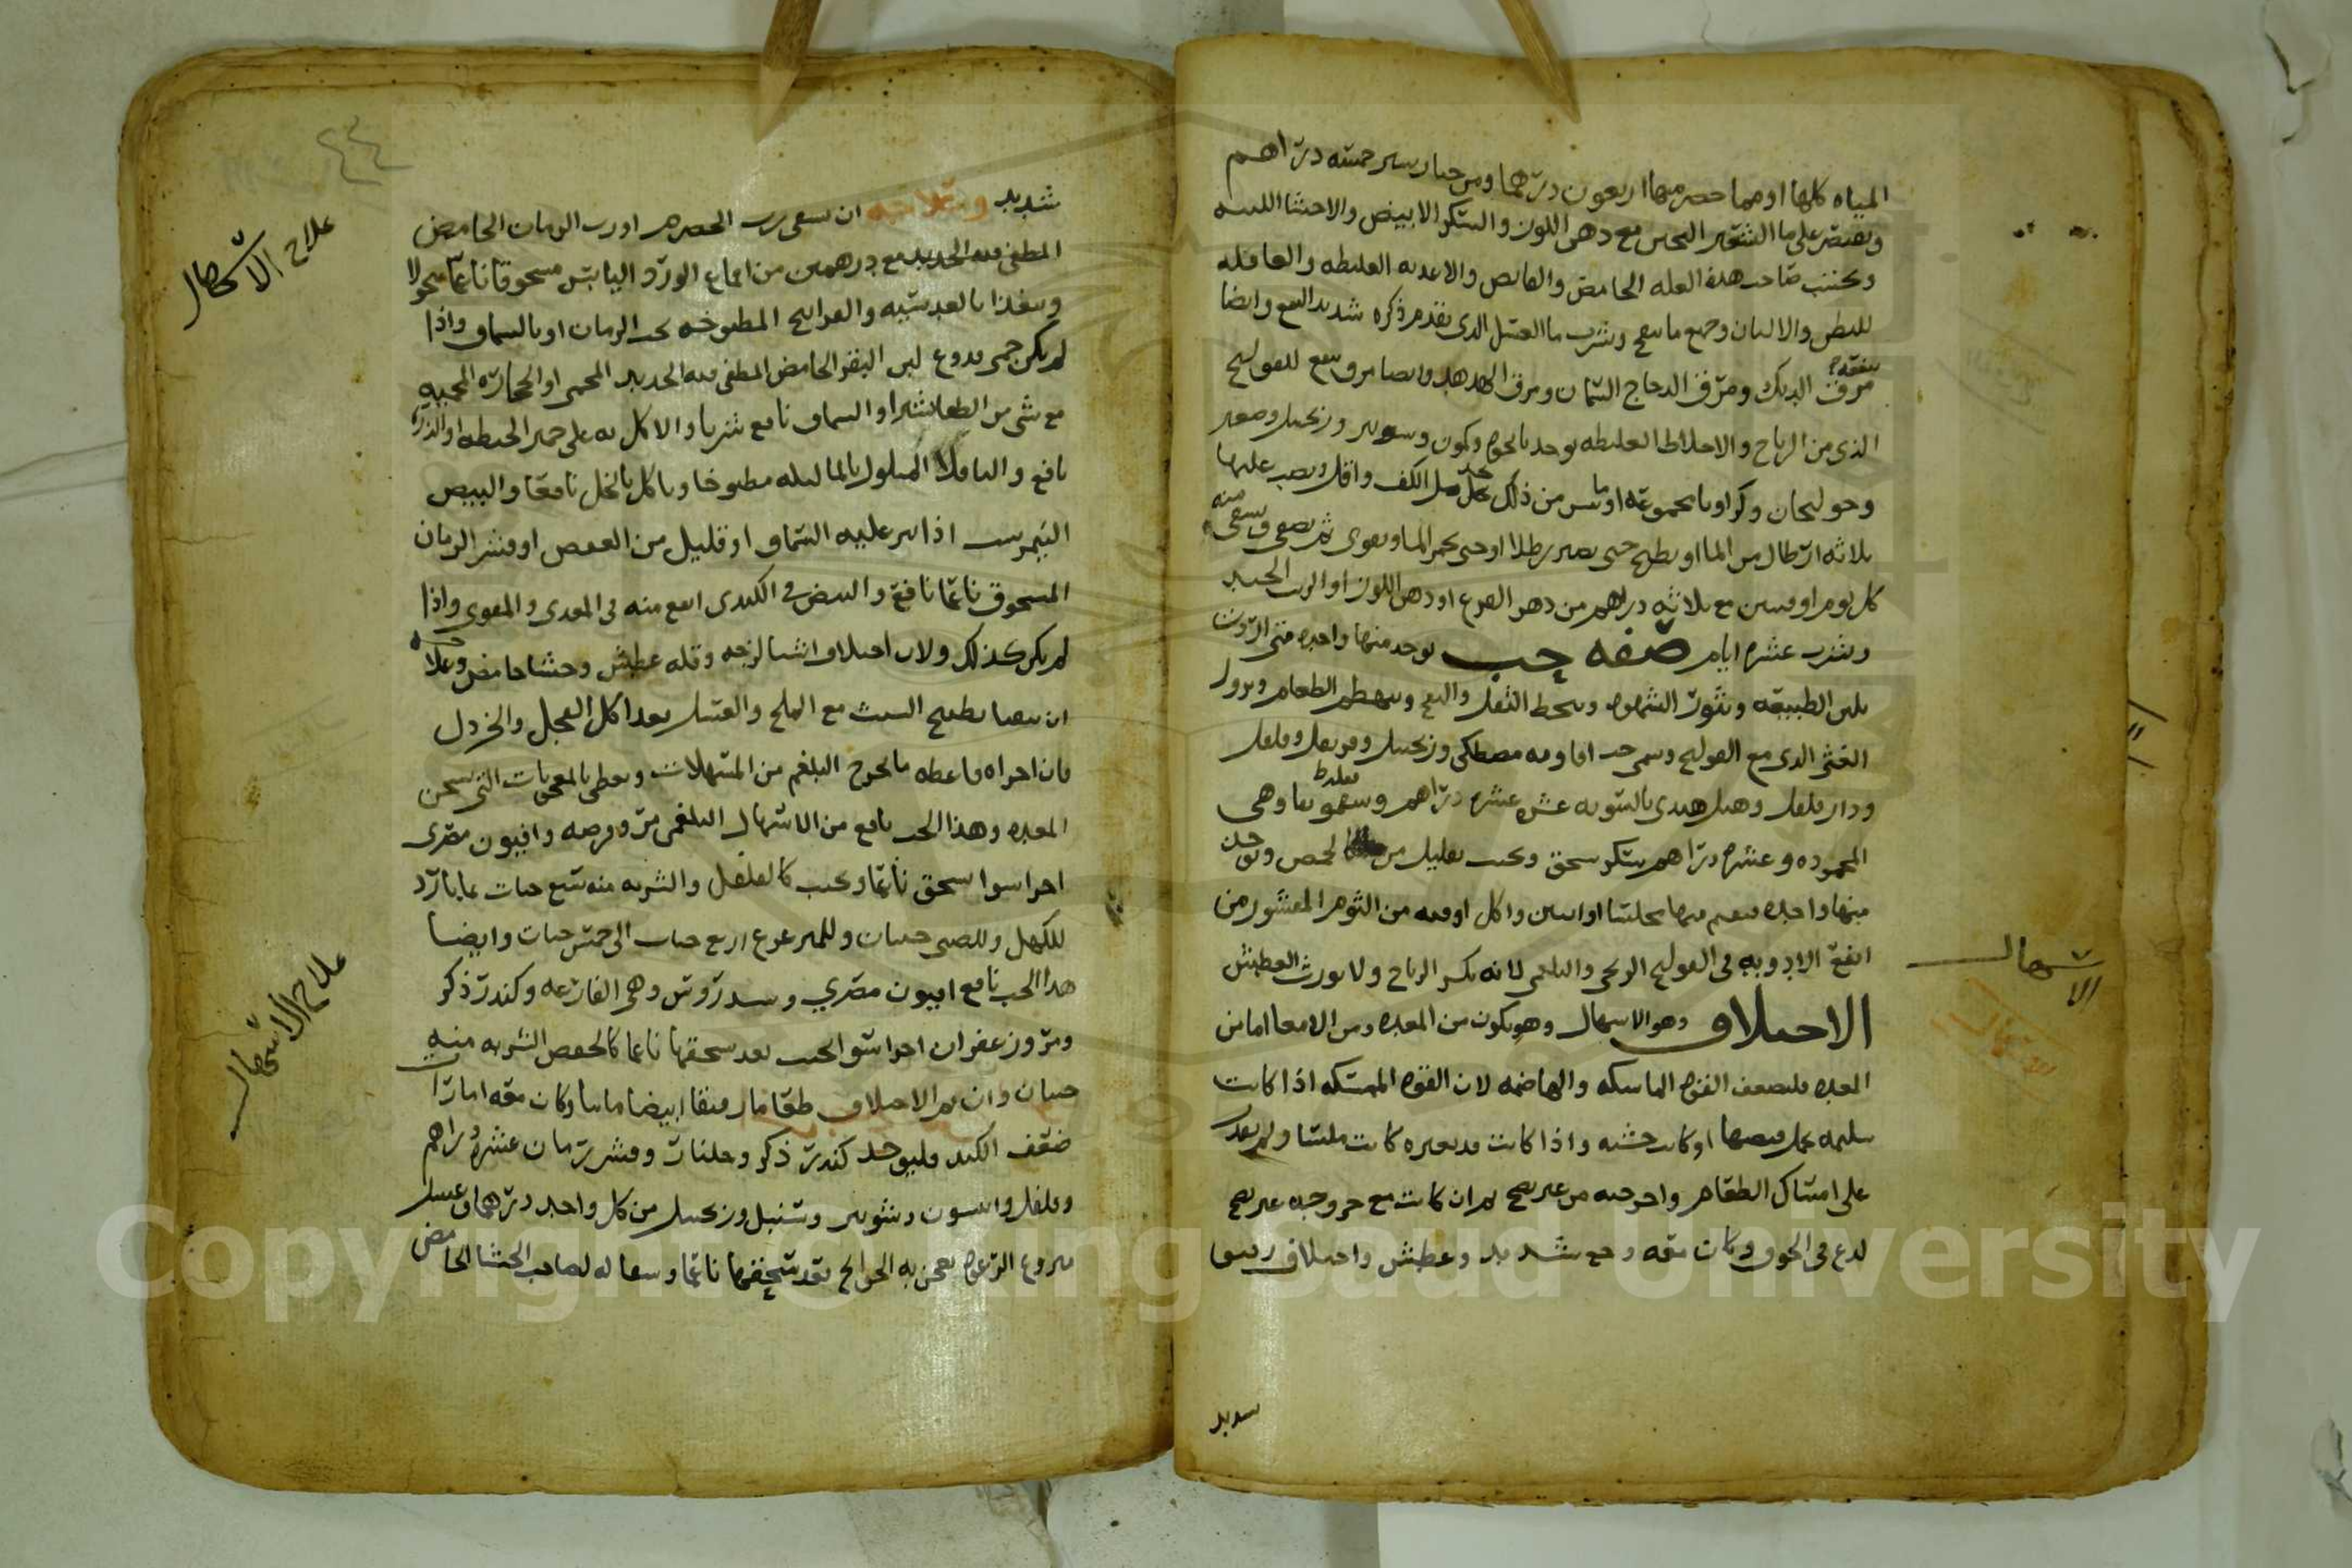 المياه كلها او مهما حضر منها اربعون درهما ومن خيار سنبر خمسه دراهم
ويقتصر على ما الشعير المحسى مع دهن اللوز والسكر الابيض والاحشا اللينه
ويجتنب صاحب هذه العله الحامض والقابض والاغديه الغليظه والعاقله
للبطن والالبان وجميع ما ينفخ وشرب ما العسل الذي تقدم ذكره شديد النفع وايضا
ينفعه مرق الديك ومرق الدجاج السمان ومرق الهدهد وايضا مرق ينفع للقولنج
الذي من الرياح والاخلاط الغليظه يوخد نانخوه وكمون وزنجبيل وصعتر
وخولنجان وكراويا مجموعه او ما تيسر من ذلك مل الكف واقل ويصب عليها
ثلاثه ارطال من الما او يطبخ حتى يصير رطلا او حتى يحمر الما ويقوى ثم يصفى ويسقى منه
كل يوم اوقيتين مع ثلاثه دراهم من دهن الخروع او دهن اللوز او الزيت الجيد
ويشرب عشره ايام صفه حب يوخد منها واحده متى اردت
يلين الطبيعه ويثور الشهوه ويحط الثفل والنفخ ويهضم الطعام ويزول
الغثي الذي مع القولنج وسمي حب افاويه مصطكى وزنجبيل وقرنفل وفلفل
ودار فلفل وهيل هندي بالسويه عشره عشره دراهم وسقمونيا وهي
المحموده وعشره دراهم سكر يسحق ويحبب بقليل من كالحمص ويوخد
منها واحده فيقيم منها مجلسا او اثنين واكل اوقيه من الثوم المقشور من
انفع الادويه في القولنج الريحي والبلغمي لانه يكسر الرياح ولا يورث العطش
الاختلاف وهو الاسهال وهو يكون من المعده ومن الامعا اما من
المعده فلضعف القوه الماسكه والهاضمه لان القوه الممسكه اذا كانت
سليمه وكانت خشنه واذا كانت متغيره كانت ملسا ولم تقدر
على امساك الطعام واخرجته من غير نضج ثم ان كانت مع خروجه غير نضج
لدع في الجوف وكان معه وجع شديد وعطش واختلاف رقيق
شديد
الاسهال
الاسهال
علاج الاسهال
شديد وعلاجه ان يسقى رب الحصرم او رب الرمان الحامض
المطفى فيه الحديد مع درهمين من اقماع الورد اليابس مسحوقا ناعما منخولا
ويغذا بالعدسيه والفراريج المطبوخه بحب الرمان او بالسماق واذا
لم يكن حمى فدوغ لبن البقر الحامض المطفى فيه الحديد المحمى او الحجاره المحميه
مع شي من الطباشير او السماق نافع شربا والاكل به على خبز الحنطه او الذره
نافع والباقلا المبلول بالما ليله مطبوخا وياكل بالخل نافعا والبيض
النيمرست اذا نثر عليه السماق او قليل من العفص او قشر الرمان
المسحوق ناعما نافع والبيض في الكبدي انفع منه في المعدي والمعوي واذا
لم يكن كذلك ولان اختلاف اشيا لزجه وقله عطش وجشا حامض وعلاجه
ان يتقيا بطبيخ الشبث مع الملح والعسل بعد اكل الفجل والخردل
فان اجزاه فاعطه ما يخرج البلغم من المسهلات ويعطى بالمعجونات التي تسخن
المعده وهذا الحب نافع من الاسهال البلغمي مر وقرصه وافيون مصري
اجزا سوا يسحق ناعما ويحبب كالفلفل والشربه منه تسع حبات بما بارد
للكهل وللصبي حبتان وللمترعرع اربع حبات الى خمس حبات وايضا
هذا الحب نافع افيون مصري وسندروس وهي الفارعه وكندر ذكر
ومر وزعفران اجزا سوا يحبب بعد سحقها ناعما كالحمص الشربه منه
حبتان وان كان الاختلاف طعاما رقيقا ابيضا مايا وكان معه امارات
ضعف الكبد فليوخد كندر ذكر وجلنار وقشر رمان عشره دراهم
وفلفل وانيسون وشونيز وسنبل وزنجبيل من كل واحد درهما وعسل
منزوع الرغوه يعجن به الحوايج بعد سحقها ناعما لصاحب الجشا الحامض
علاج الاسهال